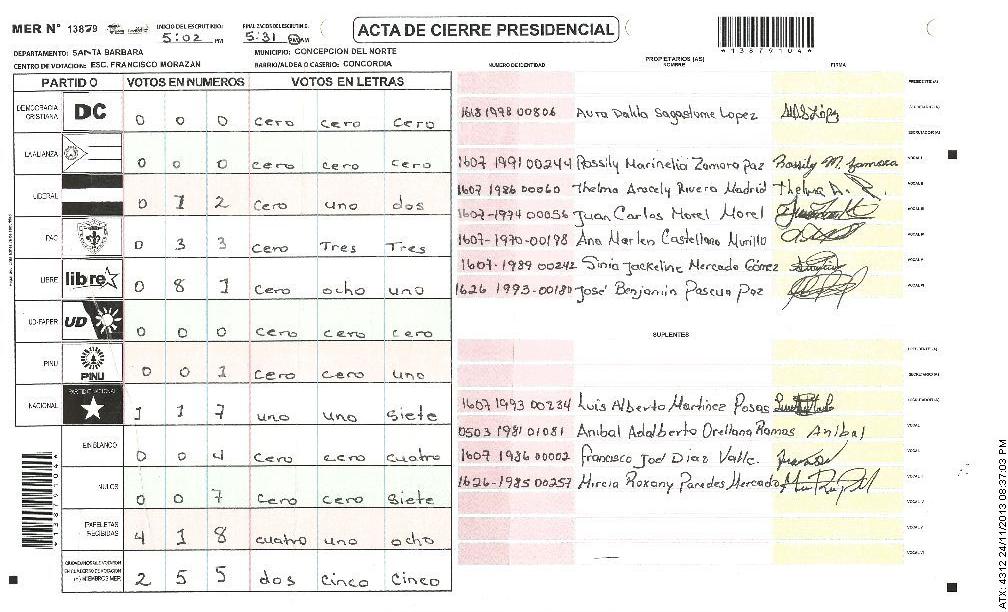 MER N° 13879
INICIO DEL ESCRUTINIO: 5:02 PM
FINALIZACION DEL ESCRUTINIO: 5:31 PM AM
ACTA DE CIERRE PRESIDENCIAL
*13879104*
DEPARTAMENTO: SANTA BARBARA
MUNICIPIO: CONCEPCION DEL NORTE
CENTRO DE VOTACION: ESC. FRANCISCO MORAZAN
BARRIO/ALDEA O CASERIO: CONCORDIA
PARTIDO VOTOS EN NUMEROS VOTOS EN LETRAS
DEMOCRACIA CRISTIANA DC 0 0 0 cero cero cero
LA ALIANZA 0 0 0 cero cero cero
LIBERAL 0 1 2 cero uno dos
PAC 0 3 3 cero Tres Tres
LIBRE libre 0 8 1 cero ocho uno
UD-FAPER UD 0 0 0 cero cero cero
PINU PINU 0 0 1 cero cero uno
NACIONAL PARTIDO NACIONAL 1 1 7 uno uno siete
EN BLANCO 0 0 4 cero cero cuatro
NULOS 0 0 7 cero cero siete
PAPELETAS RECIBIDAS 4 1 8 cuatro uno ocho
CIUDADANOS QUE VOTARON EN CUADERNO DE VOTACION (+) MIEMBROS MER 2 5 5 dos cinco cinco
NUMERO DE IDENTIDAD
PROPIETARIOS (AS)
NOMBRE
FIRMA
PRESIDENTE (A)
1618 1998 00806 Aura Dalila Sagastume Lopez
SECRETARIO (A)
1607 1991 00244 Rossily Marinelia Zamora Paz Rossily M. Zamora VOCAL I
1607 1986 00060 Thelma Aracely Rivera Madrid Thelma A. R. VOCAL II
1607-1974 00056 Juan Carlos Morel Morel VOCAL III
1607-1970-00198 Ana Marlen Castellano Murillo VOCAL IV
1607-1989 00242 Sinia Jackeline Mercado Gómez VOCAL V
1626 1993-00180 José Benjamin Pascua Paz VOCAL VI
SUPLENTES
PRESIDENTE (A)
SECRETARIO (A)
1607 1993 00234 Luis Alberto Martinez Posas
0503 1981 01081 Anibal Adalberto Orellana Ramos Anibal VOCAL I
1607 1986 00002 Francisco Joel Diaz Valle.
1626-1985 00257 Mircia Roxany Paredes Mercado
VOCAL V
VOCAL VI
ATX: 4312 24/11/2013 08:37:03 PM